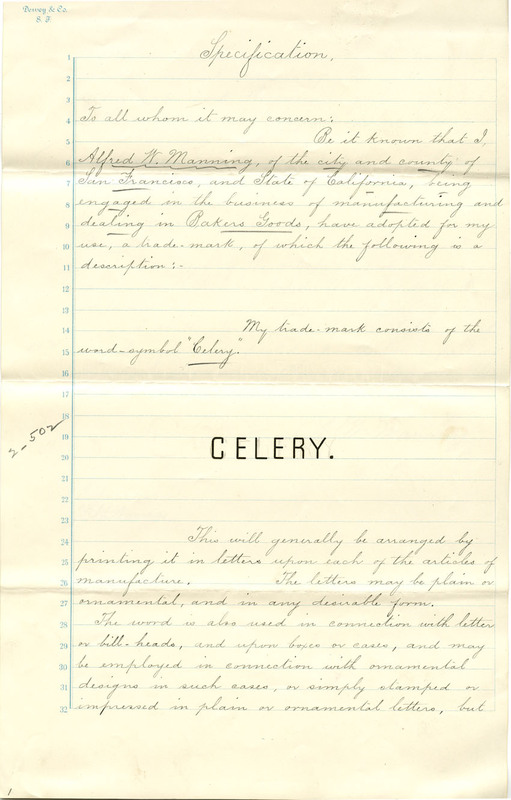 Dewey & Co.
S. F.
Specification.
1
2
3
4 To all whom it may concern:
5 Be it known that I,
6 Alfred W. Manning, of the city and county of
7 San Francisco, and State of California, being
8 engaged in the business of manufacturing and
9 dealing in Bakers Goods, have adopted for my
10 use, a trade-mark, of which the following is a
11 description:-
12
13
14 My trade-mark consists of the
15 word-symbol "Celery".
16
17
18
2-502
19
20 CELERY.
21
22
23
24 This will generally be arranged by
25 printing it in letters upon each of the articles of
26 manufacture. The letters may be plain or
27 ornamental, and in any desirable form.
28 The word is also used in connection with letter
29 or bill-heads, and upon boxes or cases, and may
30 be employed in connection with ornamental
31 designs in such cases, or simply stamped or
32 impressed in plain or ornamental letters, but
1